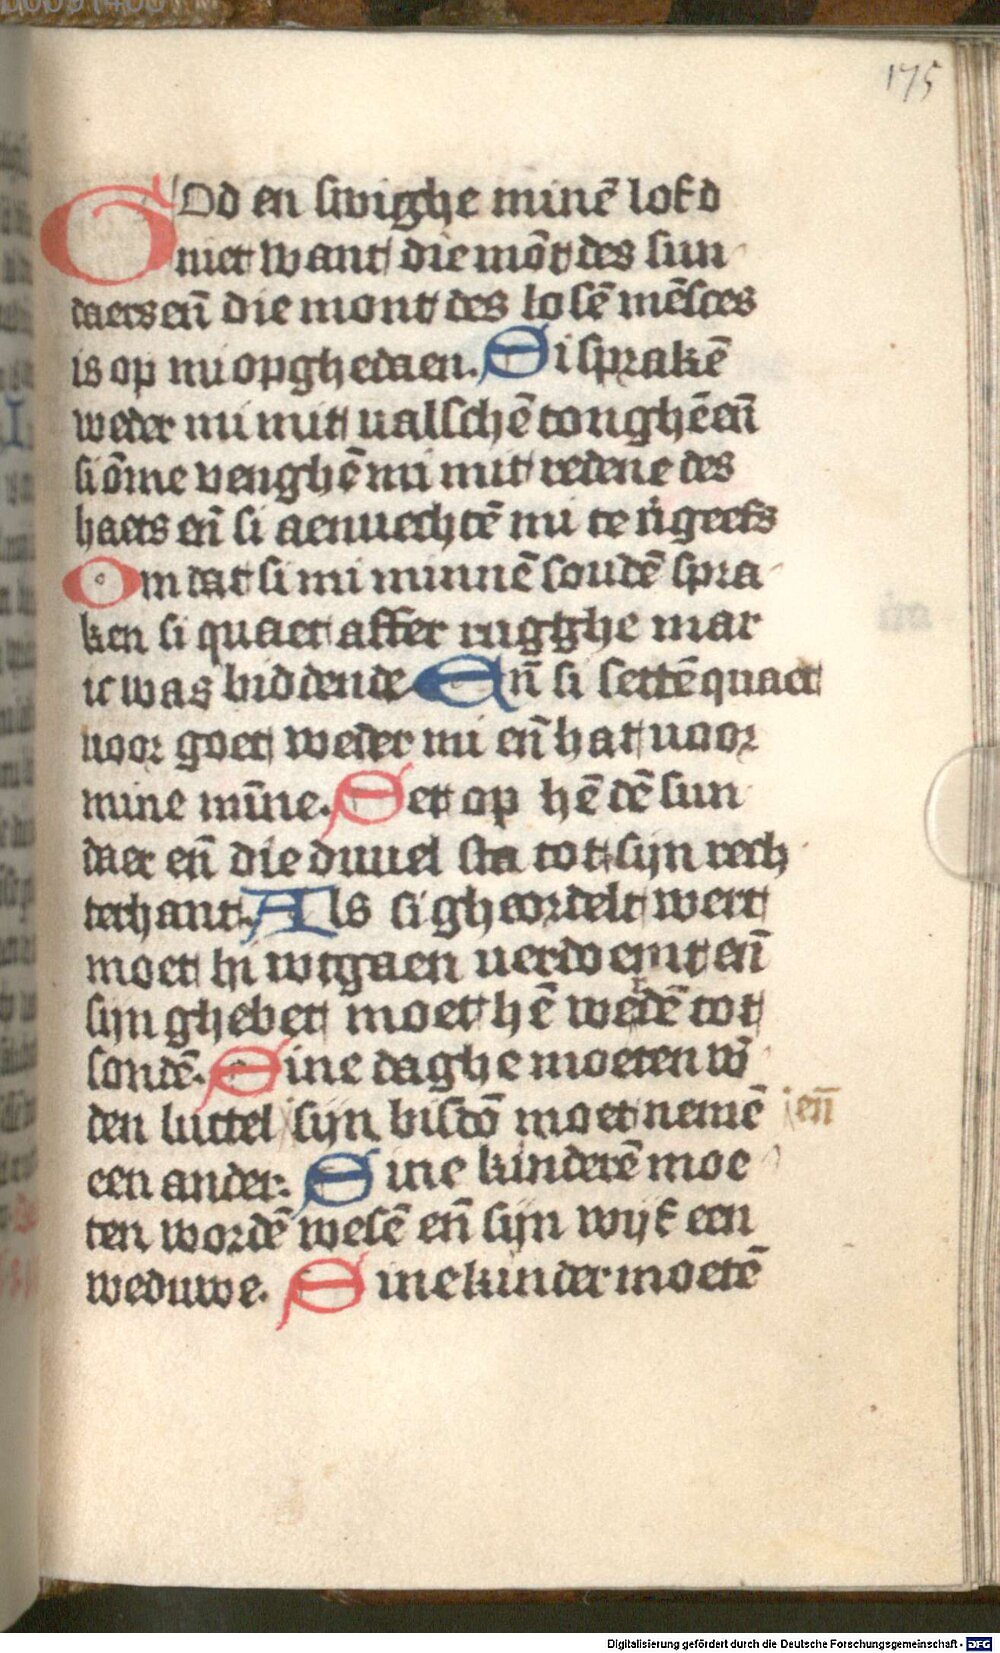 175
GOd en swighe minē lof d
niet want die mōt des sun
daers en̄ die mont des losē mēsces
is op mi opghedaen. Si sprakē
weder mi mit ualschē tonghē en̄
si ōme venghē mi mit redene des
haets en̄ si aenuechtē mi te v̄geefs
Om dat si mi minnē soudē spra
ken si quaet affter rugghe mar
ic was biddende En̄ si settē quaet
uoor goet weder mi en̄ hat uoor
mine mīne. Set op hē dē sun
daer en̄ die duuel sta tot sijn rech
terhant. Als si gheordelt wert
moet hi wtgaen uerdoemt en̄
sijn ghebet moet hē wedē tot
sondē. Sine daghe moeten w̄
den luttel sijn biscō moet nemē en̄
een ander. Sine kinderē moe
ten wordē wesē en̄ sijn wijf een
weduwe. Sine kinder moetē
Digitalisierung gefördert durch die Deutsche Forschungsgemeinschaft - DFG